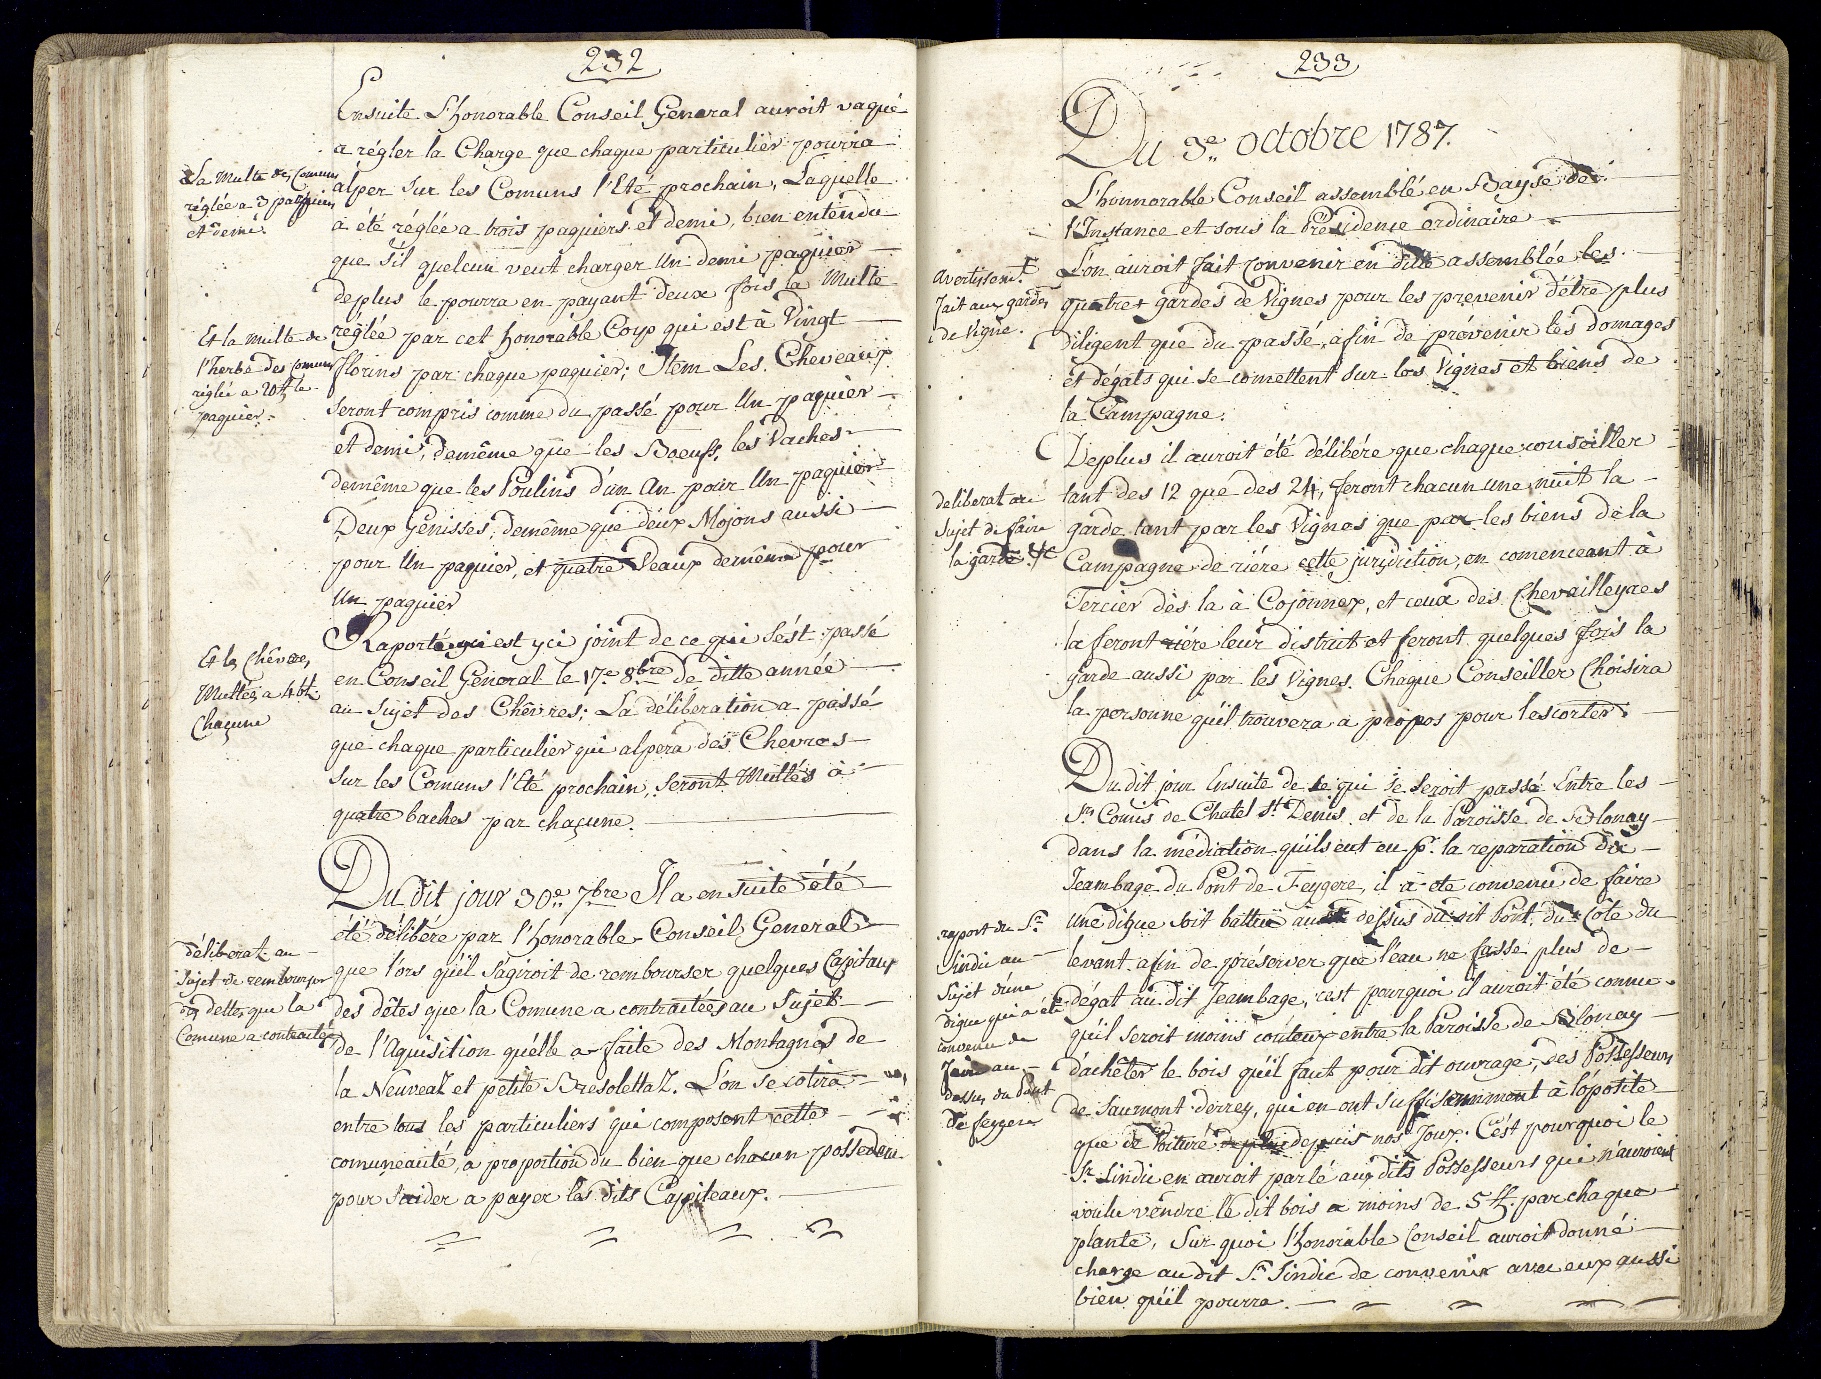 232
Ensuite L'honorable Conseil General auroit vaqué
a régler la Charge que chaque particulier pourra
La Multe des Comuns
réglée a 3 paquiers
et demi.
alper sur les Comuns l'Eté prochain, Laquelle
à été réglée a trois paquiers et demi, bien entendu
que s'il quelcun veut charger Un demi paquier
deplus le pourra en payant deux fois la Multe
Et la multe de
l'herbe des Comuns
réglée a 20 ff le
paquier.
réglée par cet honorable Corp qui est à Vingt
florins par chaque paquier; Item Les Cheveaux
seront compris comme du passé pour Un paquier
et demi, demême que les Boeufs, les Vaches
demême que les Poulins d'un An pour Un paquier
Deux Genisses, demême que deux Mojons aussi
pour Un paquier, et quatre Veaux demême pour
Un paquier
Et les Chèvres,
Multées a 4 bt.
Chaçune
Raporté qui est yci joint de ce qui s'est passé
en Conseil General le 17e 8bre de ditte année
au Sujet des Chêvres; La déliberation a passé
que chaque particulier qui alpera des Chevres
sur les Comuns l'Eté prochain, seront Multés à
quatre baches par chaçune.
Du dit jour 30e 7bre Il a ensuite été
déliberat. au
Sujet de rembourser
des dettes que la
Comune a contractée
été délibéré par l'honorable Conseil General
que l'ors qu'il s'agiroit de rembourser quelques Capitaux
des dêtes que la Comune a contractées au Sujet
de l'Aquisition qu'elle a faite des Montagnes de
la Neuveaz et petite Bresolettaz. L'on se cotira
entre tous les particuliers qui composent cette
comuneauté, a proportion du bien que chacun possedera
pour s'aider a payer les dits Capiteaux.
233
Du 3e octobre 1787.
L'honnorable Conseil assemblé en Bayse de
l'Instance et sous la Présidence ordinaire
Avertissemt
fait aux gardes
de Vigne.
L'on auroit fait convenir en ditte assemblée les
quatre gardes de Vignes pour les prevenir d'être plus
diligent que du passé, afin de prévenir les domages
et dégats qui se comettent sur les Vignes et biens de
la Campagne.
deliberat au
Sujet de faire
la garde &c
Deplus il auroit été délibéré que chaque conseiller
tant des 12 que des 24, feront chacun une nuit la
garde tant par les Vignes que par les biens de la
Campagne de rière cette jurisdiction, en comenceant à
Tercier dès la à Cojonnex, et ceux des Chevailleyres
la feront rière leur distruit et feront quelques fois la
garde aussi par les Vignes. Chaque Conseiller Choisira
la personne qu'il trouvera a propos pour l'escorter.
Du dit jour Ensuite de ce qui se seroit passé Entre les
Srs Comis de Chatel St. Denis et de la Paroisse de Blonay
dans la médiation qu'ils ont eu pr. la reparation du
Jeambage du Pont de Feygere, il à été convenu de faire
raport du Sr
Sindic au
Sujet d'une
digue qui a été
convenue de
faire au
dessus du Pont
de feygere
une digue soit battue au dessus du dit Pont, du Coté du
levant afin de préserver que l'eau ne fasse plus de
dégat au dit Jeambage, c'est pourquoi il auroit été connu
qu'il seroit moins couteux entre la Paroisse de Blonay
d'achêter le bois qu'il faut pour dit ouvrage, des Possesseurs
de Saumont derrey, qui en ont suffisamment à l'oposite
que de Voituré depuis nos Joux. C'est pourquoi le
Sr. Sindic en auroit parlé aux dits Possesseurs qui n'auroient
voulu vendre le dit bois a moins de 5 ff. par chaque
plante, Sur quoi l'honorable Conseil auroit donné
charge au dit Sr Sindic de convenir avec eux aussi
bien qu'il pourra.